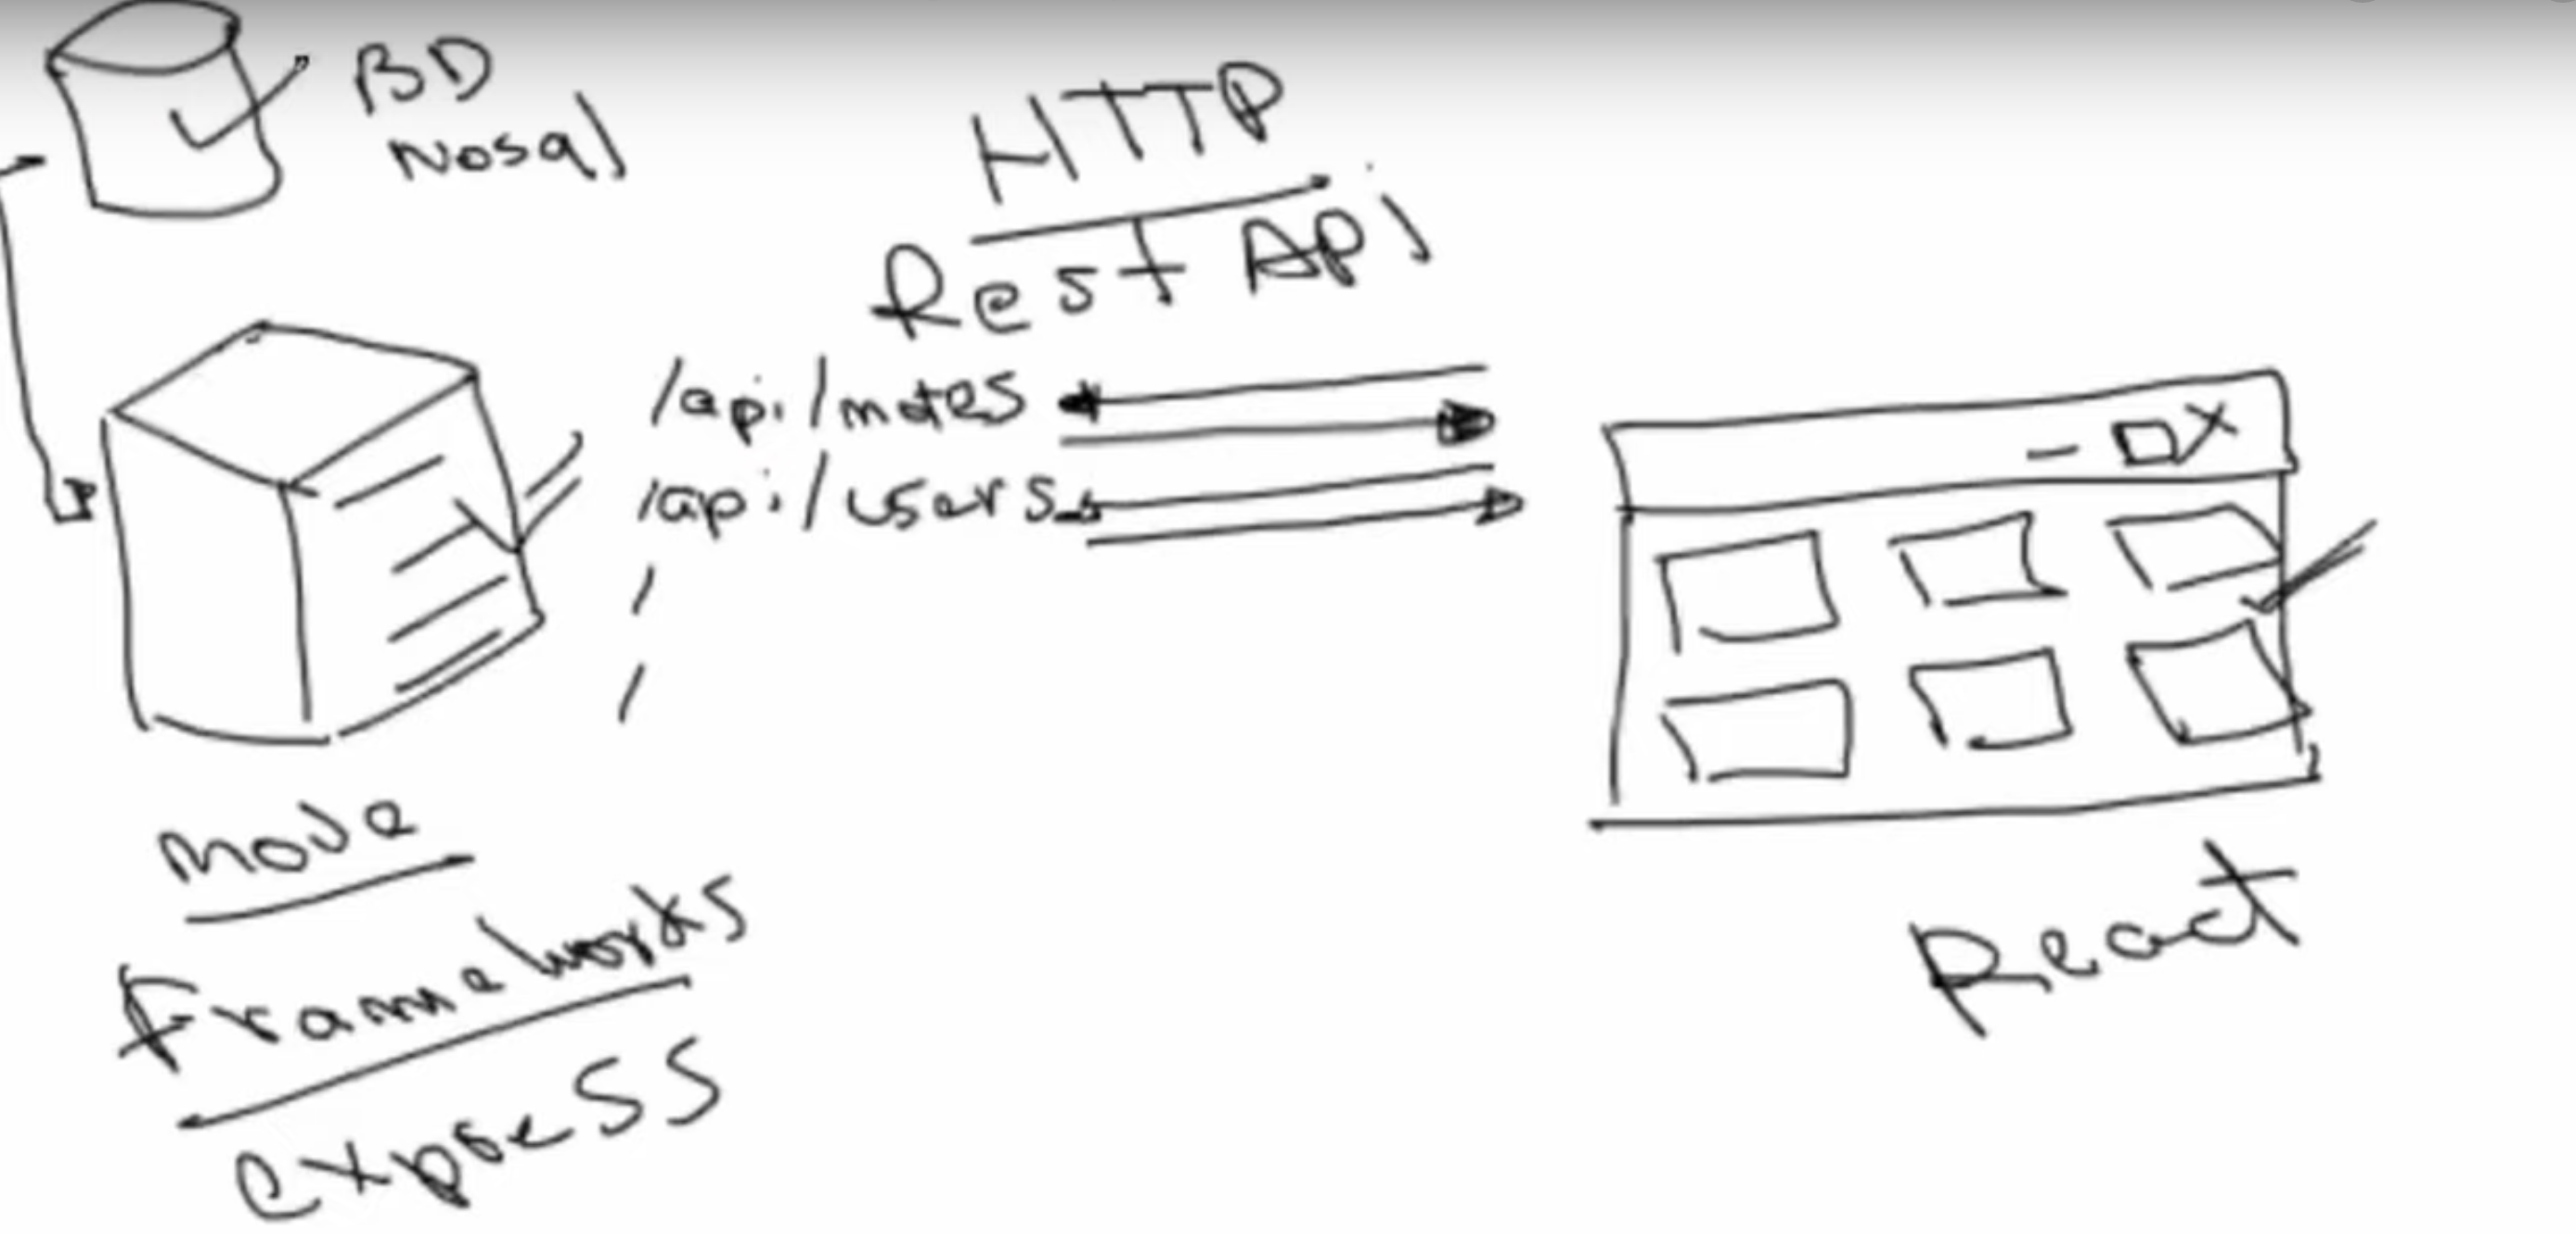 BD
Nosql
HTTP
Rest APi
/api/notes
/api/users
/
/
node
frameworks
express
React